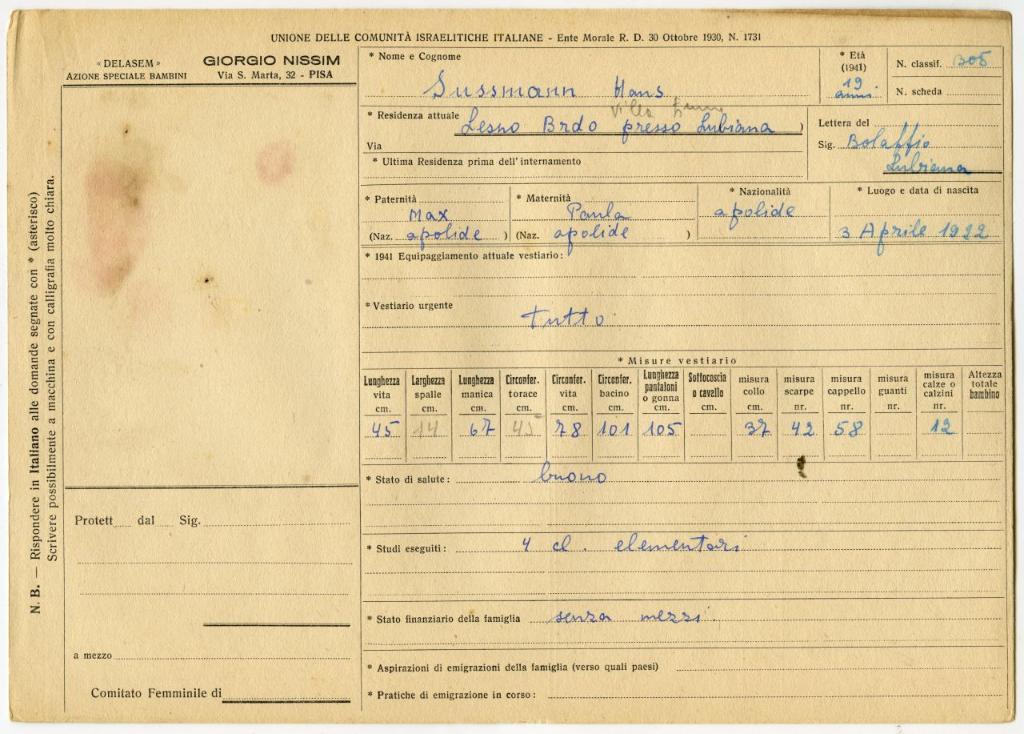 UNIONE DELLE COMUNITÀ ISRAELITICHE ITALIANE - Ente Morale R. D. 30 Ottobre 1930, N. 1731
« DELASEM »
AZIONE SPECIALE BAMBINI
GIORGIO NISSIM
Via S. Marta, 32 - PISA
N. B. — Rispondere in Italiano alle domande segnate con * (asterisco)
Scrivere possibilmente a macchina e con calligrafia molto chiara.
* Nome e Cognome
Sussmann Hans
* Età
(1941)
19
anni
N. classif. 305
N. scheda
Villa
* Residenza attuale Lesno Brdo presso Lubiana )
Via
* Ultima Residenza prima dell'internamento
Lettera del
Sig. Bolaffio
Lubiana
* Paternità
Max
(Naz. apolide )
* Maternità
Paula
(Naz. apolide )
* Nazionalità
apolide
* Luogo e data di nascita
3 Aprile 1922
* 1941 Equipaggiamento attuale vestiario:
* Vestiario urgente
tutto
* Misure vestiario
Lunghezza vita cm. 45
Larghezza spalle cm. 44
Lunghezza manica cm. 67
Circonfer. torace cm. 45
Circonfer. vita cm. 78
Circonfer. bacino cm. 101
Lunghezza pantaloni o gonna cm. 105
Sottocoscia o cavallo cm.
misura collo cm. 37
misura scarpe nr. 42
misura cappello nr. 58
misura guanti nr.
misura calze o calzini nr. 12
Altezza totale bambino
* Stato di salute: buono
* Studi eseguiti: 4 cl. elementari
* Stato finanziario della famiglia senza mezzi.
* Aspirazioni di emigrazioni della famiglia (verso quali paesi)
* Pratiche di emigrazione in corso:
Protett dal Sig.
a mezzo
Comitato Femminile di